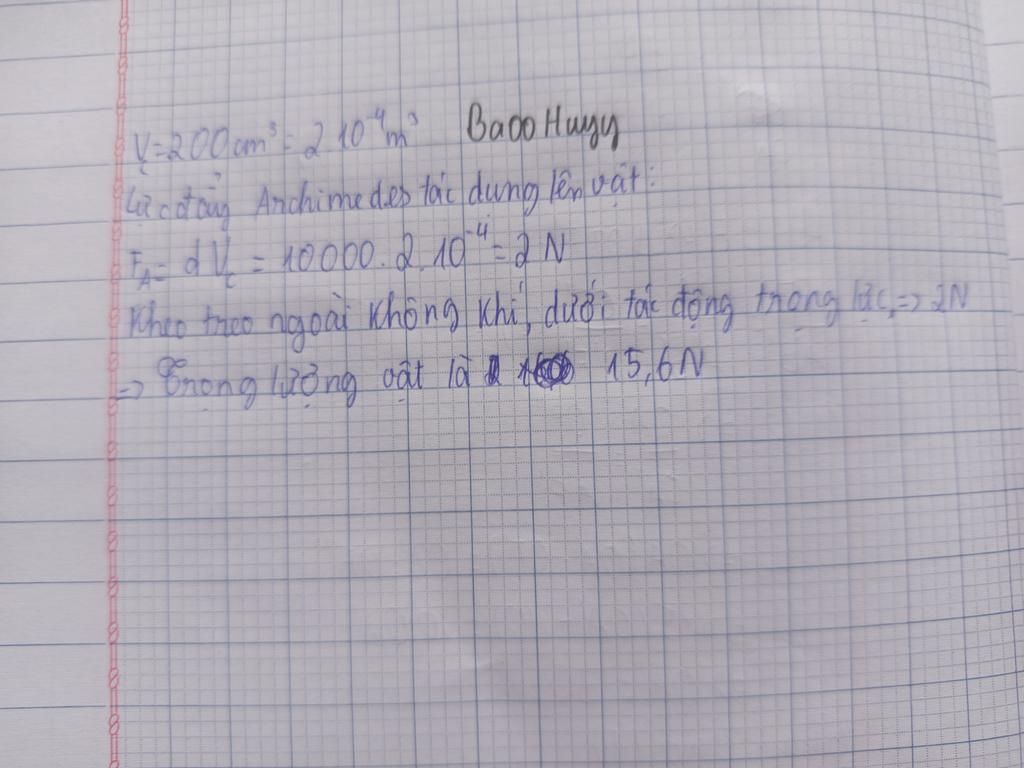 V_c=200cm³=2 10⁻⁴m³ Baoo Huyy
Lực đẩy Archimedes tác dung lên vật:
F_A= d V_c = 10000.2.10⁻⁴=2 N
Kheo treo ngoài không khí, dưới tác động trọng lực => 2N
=> Trọng lượng vật là 15,6N